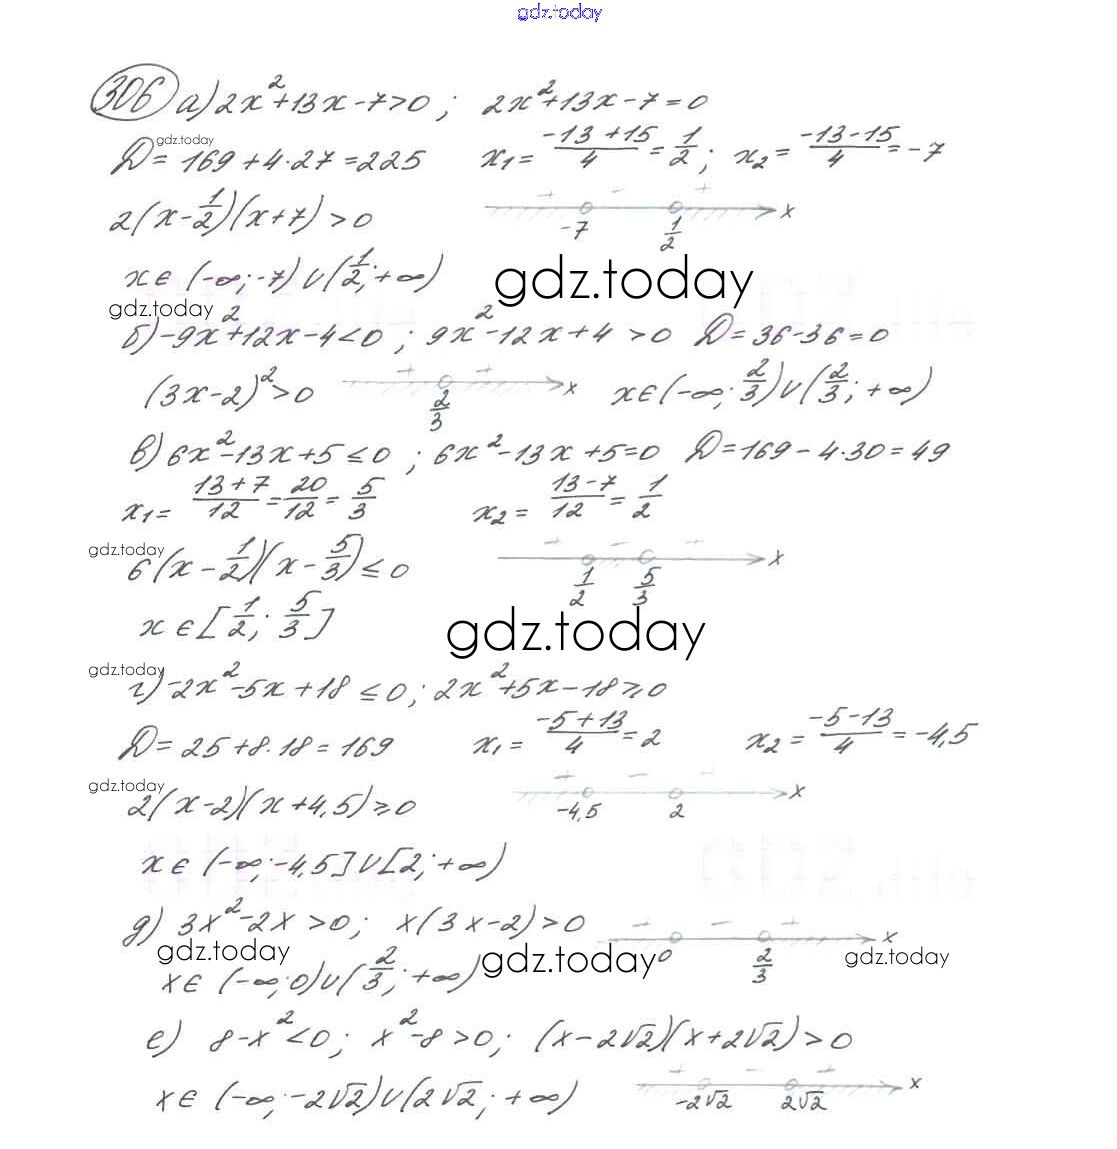 gdz.today
306 а) 2x²+13x-7>0 ; 2x²+13x-7=0
gdz.today
D=169+4·27=225 x₁= (-13+15)/4 = 1/2 ; x₂= (-13-15)/4 = -7
2(x-1/2)(x+7)>0 + - + -7 1/2 x
x∈(-∞;-7)∪(1/2;+∞)
gdz.today
gdz.today
б) -9x²+12x-4<0 ; 9x²-12x+4>0 D=36-36=0
(3x-2)²>0 + + 2/3 x x∈(-∞;2/3)∪(2/3;+∞)
в) 6x²-13x+5≤0 ; 6x²-13x+5=0 D=169-4·30=49
x₁= (13+7)/12 = 20/12 = 5/3 x₂= (13-7)/12 = 1/2
gdz.today
6(x-1/2)(x-5/3)≤0 + - + 1/2 5/3 x
x∈[1/2;5/3]
gdz.today
gdz.today
г) -2x²-5x+18≤0; 2x²+5x-18≥0
D=25+8·18=169 x₁= (-5+13)/4 = 2 x₂= (-5-13)/4 = -4,5
gdz.today
2(x-2)(x+4,5)≥0 + - - -4,5 2 x
x∈(-∞;-4,5]∪[2;+∞)
д) 3x²-2x>0; x(3x-2)>0 + - + 0 2/3 x
gdz.today gdz.today gdz.today
x∈(-∞;0)∪(2/3;+∞)
е) 8-x²<0; x²-8>0; (x-2√2)(x+2√2)>0
x∈(-∞;-2√2)∪(2√2;+∞) + - + -2√2 2√2 x